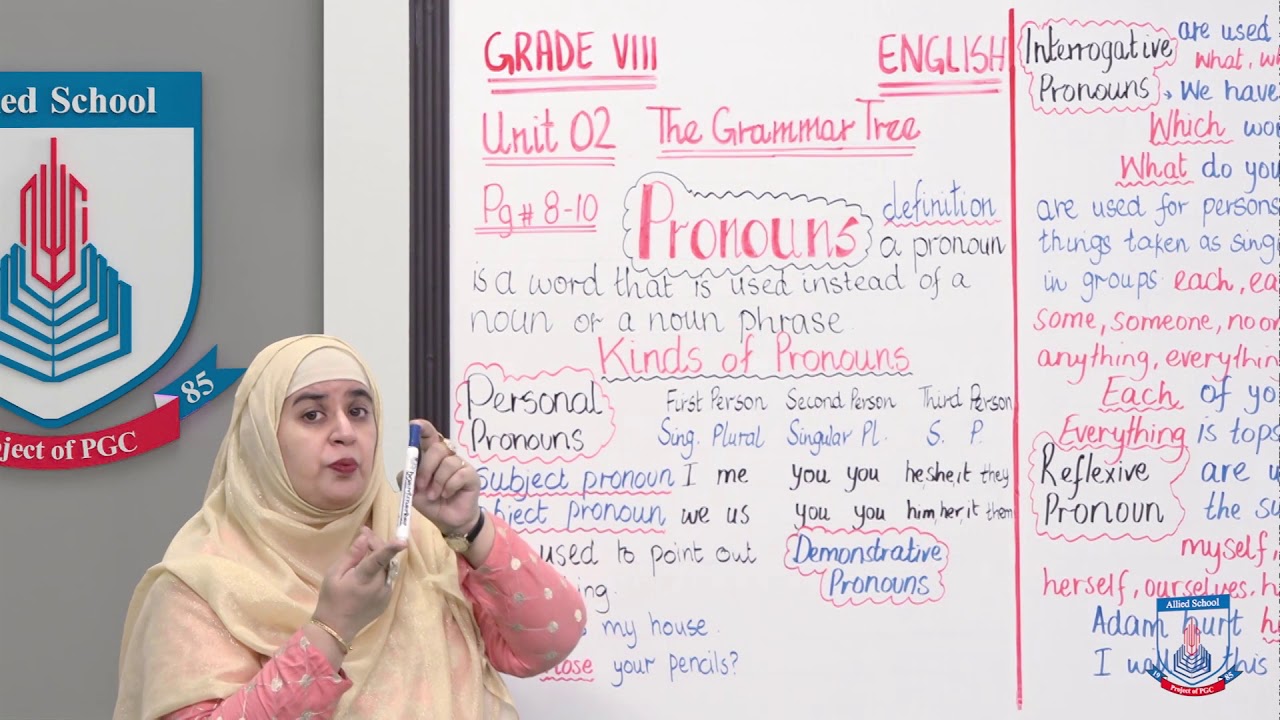 ied School
85
oject of PGC
GRADE VIII ENGLISH
Unit 02 The Grammar Tree
Pg# 8-10 Pronouns definition
a pronoun
is a word that is used instead of a
noun or a noun phrase.
Kinds of Pronouns
Personal Pronouns
First Person Second Person Third Person
Sing. Plural Singular Pl. S. P.
Subject pronoun I me you you he,she,it they
bject pronoun we us you you him,her,it them
used to point out
Demonstrative Pronouns
ng.
my house.
hose your pencils?
Interrogative Pronouns
are used
what, w
→ We have
Which wor
What do you
are used for persons
things taken as sing
in groups each, ea
some, someone, no on
anything, everythin
Each of yo
Everything is tops
Reflexive Pronoun
are u
the su
myself,
herself, ourselves, h
Adam hurt h
I wa this
Allied School
19 85
Project of PGC